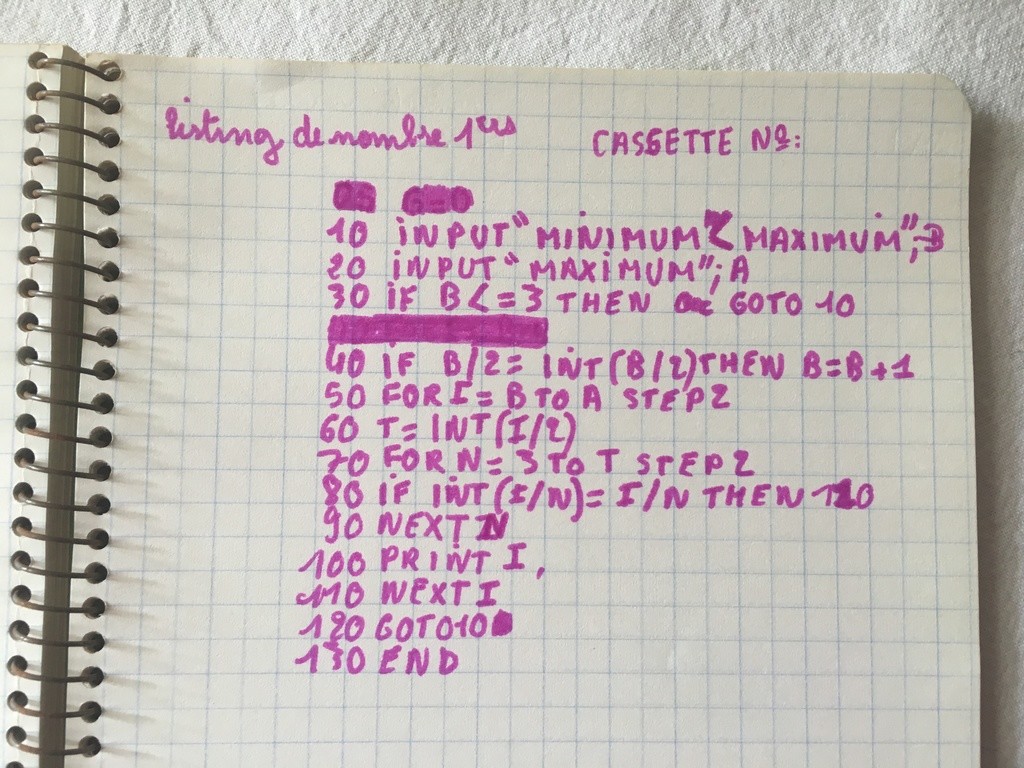 Listing de nombre 1ers CASSETTE Nº:
10 INPUT "MINIMUM < MAXIMUM";B
20 INPUT "MAXIMUM"; A
30 IF B<=3 THEN GOTO 10
40 IF B/2= INT(B/2)THEN B=B+1
50 FOR I=B TO A STEP2
60 T= INT(I/2)
70 FOR N=3 TO T STEP2
80 IF INT(I/N)= I/N THEN 110
90 NEXT N
100 PRINT I,
110 NEXT I
120 GOTO10
130 END